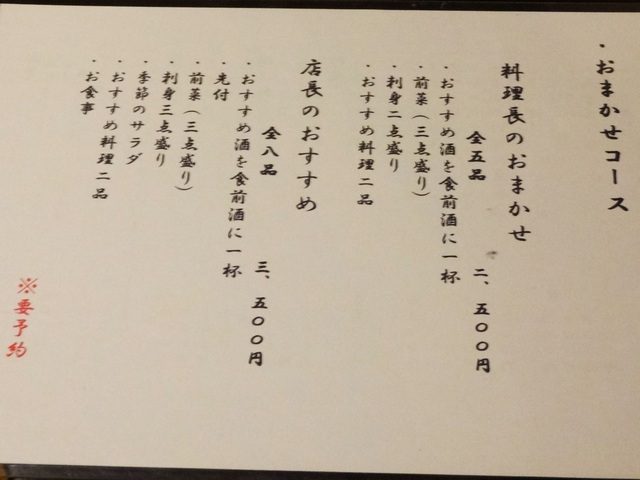 ・おまかせコース
料理長のおまかせ
全五品 二、五〇〇円
・おすすめ酒を食前酒に一杯
・前菜(三点盛り)
・刺身二点盛り
・おすすめ料理二品
店長のおすすめ
全八品 三、五〇〇円
・おすすめ酒を食前酒に一杯
・先付
・前菜(三点盛り)
・刺身三点盛り
・季節のサラダ
・おすすめ料理二品
・お食事
※要予約